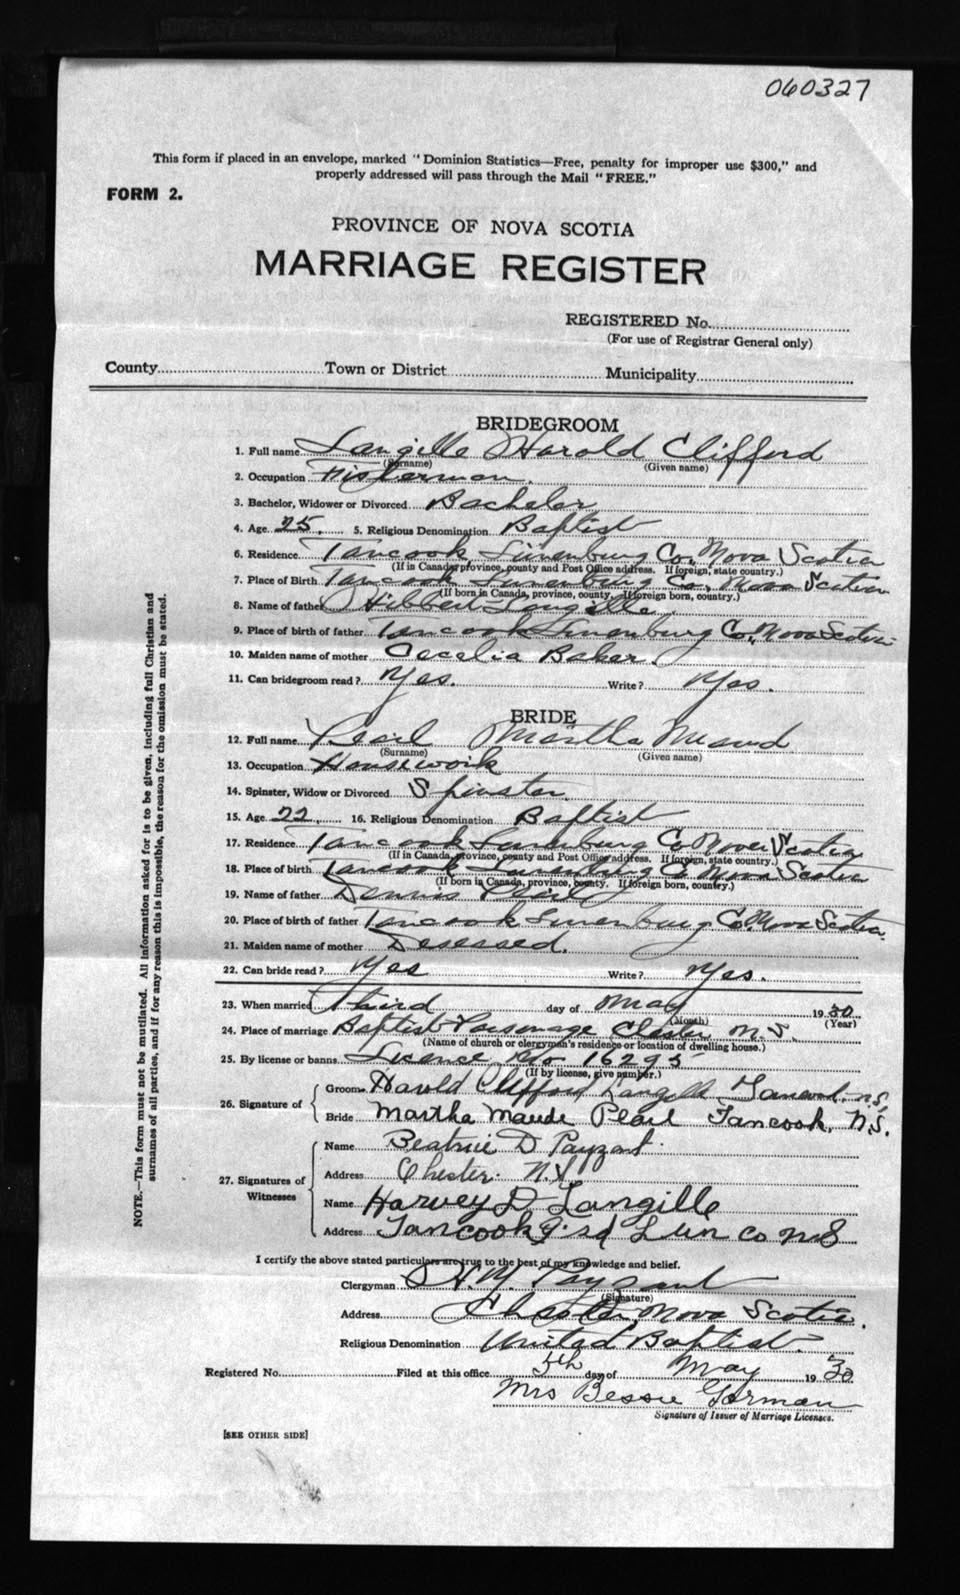 060327
This form if placed in an envelope, marked "Dominion Statistics—Free, penalty for improper use $300," and
properly addressed will pass through the Mail "FREE."
FORM 2.
PROVINCE OF NOVA SCOTIA
MARRIAGE REGISTER
REGISTERED No.
(For use of Registrar General only)
County Town or District Municipality
BRIDEGROOM
1. Full name Langille Harold Clifford
(Surname) (Given name)
2. Occupation Fisherman.
3. Bachelor, Widower or Divorced Bachelor
4. Age 25. 5. Religious Denomination Baptist
6. Residence Tancook Lunenburg Co, Nova Scotia
(If in Canada, province, county and Post Office address. If foreign, state country.)
7. Place of Birth Tancook Lunenburg Co, Nova Scotia
(If born in Canada, province, county. If foreign born, country.)
8. Name of father Hibbert Langille.
9. Place of birth of father Tancook Lunenburg Co, Nova Scotia
10. Maiden name of mother Cecelia Baker.
11. Can bridegroom read? Yes. Write? Yes.
BRIDE
12. Full name Pearl Martha Meaud
(Surname) (Given name)
13. Occupation Housework
14. Spinster, Widow or Divorced Spinster.
15. Age 22. 16. Religious Denomination Baptist
17. Residence Tancook Lunenburg Co Nover Scotia
(If in Canada, province, county and Post Office address. If foreign, state country.)
18. Place of birth Tancook Lunenburg Co Nova Scotia
(If born in Canada, province, county. If foreign born, country.)
19. Name of father Dennis Pearl
20. Place of birth of father Tancook Lunenburg Co. Nova Scotia.
21. Maiden name of mother Desessed.
22. Can bride read? Yes Write? Yes.
23. When married Third day of May 1930
(Month) (Year)
24. Place of marriage Baptist Parsonage Chester N.S.
(Name of church or clergyman's residence or location of dwelling house.)
25. By license or banns Licence No 16295
(If by license, give number.)
26. Signature of
Groom Harold Clifford Langille Tancook. N.S.
Bride Martha Maude Pearl Tancook, N.S.
27. Signatures of Witnesses
Name Beatrice D Payzant.
Address Chester. N.S.
Name Harvey D. Langille
Address Tancook Lun co NS
I certify the above stated particulars are true to the best of my knowledge and belief.
Clergyman Payzant
(Signature)
Address Chester, Nova Scotia.
Religious Denomination United Baptist.
Registered No. Filed at this office 5th day of May 1930
Mrs Bessie Gorman
Signature of Issuer of Marriage Licenses.
[SEE OTHER SIDE]
NOTE.—This form must not be mutilated. All information asked for is to be given, including full Christian and
surnames of all parties, and if for any reason this is impossible, the reason for the omission must be stated.